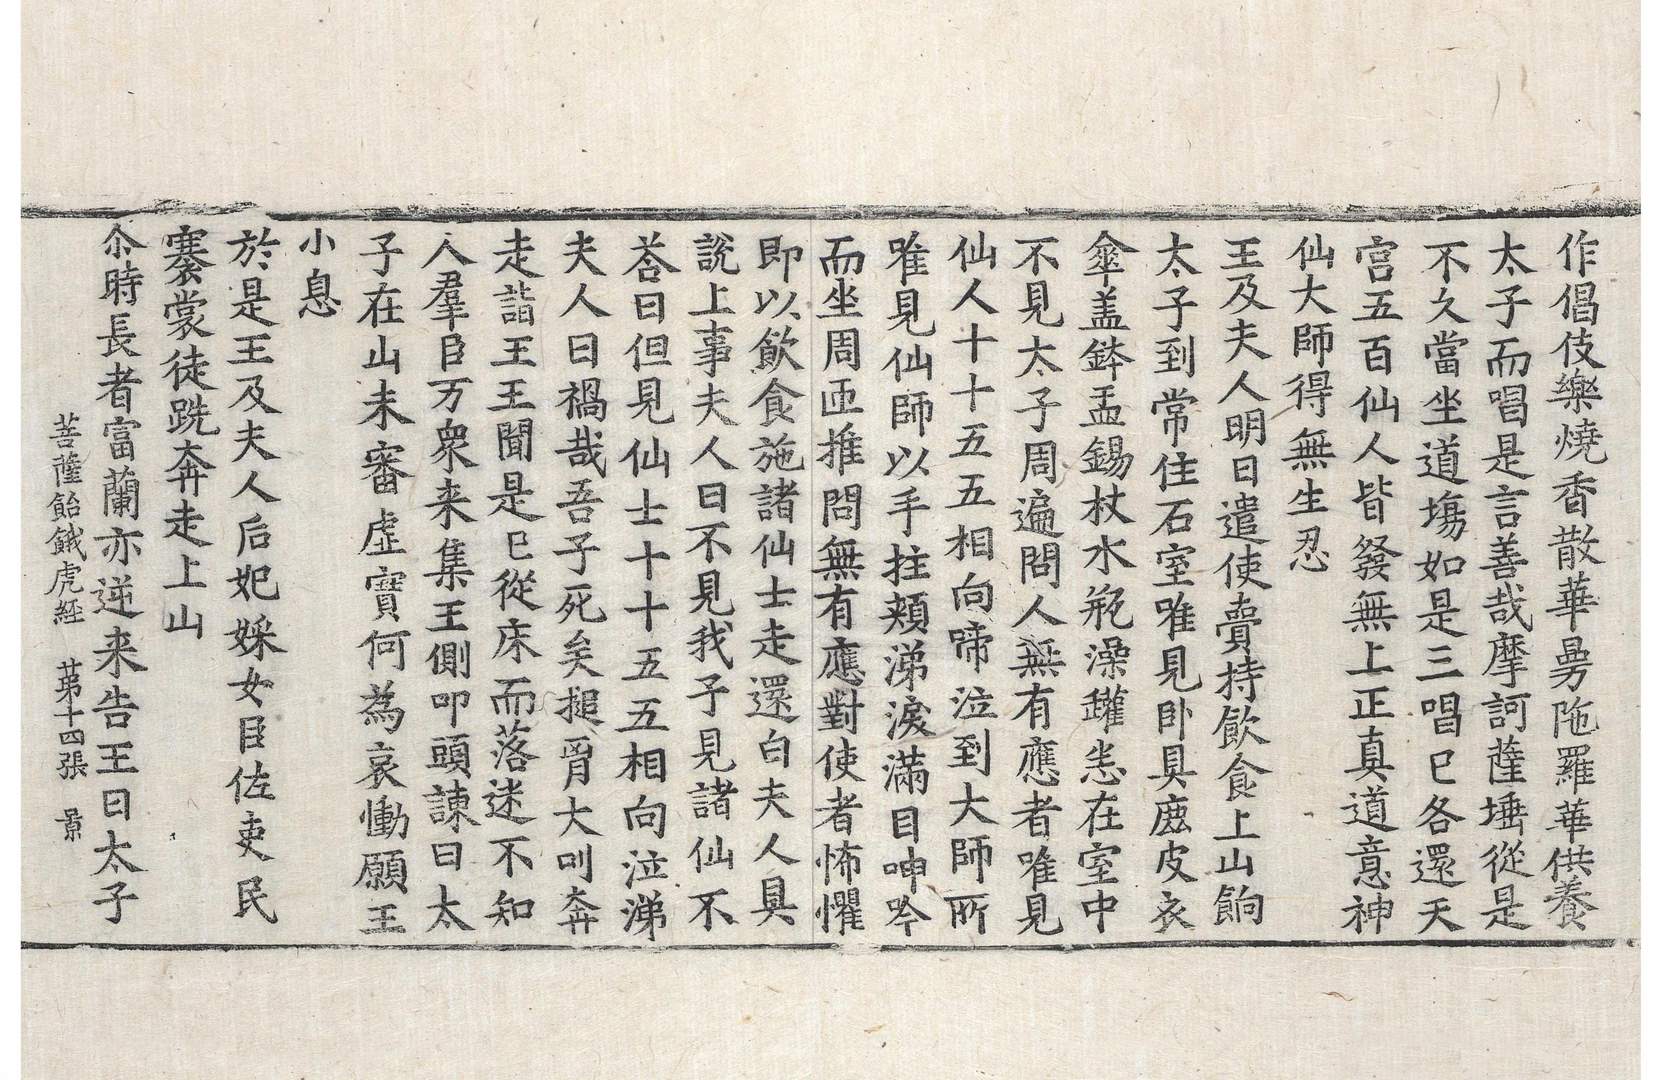 作倡伎樂燒香散華㬅陁羅華供養
太子而唱是言善哉摩訶薩埵從是
不久當坐道塲如是三唱已各還天
宮五百仙人皆發無上正真道意神
仙大師得無生忍
王及夫人明日遣使賣持飲食上山餉
太子到常住石室唯見卧具鹿皮衣
傘盖鉢盂錫杖水瓶澡罐悉在室中
不見太子周遍問人無有應者唯見
仙人十十五五相向啼泣到大師所
唯見仙師以手拄頰涕淚滿目呻吟
而坐周匝推問無有應對使者怖懼
即以飲食施諸仙士走還白夫人具
說上事夫人曰不見我子見諸仙不
荅曰但見仙士十十五五相向泣涕
夫人曰禍哉吾子死矣搥胷大叫奔
走詣王王聞是已從床而落迷不知
人羣臣万衆来集王側叩頭諫曰太
子在山未審虛實何為哀慟願王
小息
於是王及夫人后妃婇女臣佐吏民
褰裳徒跣奔走上山
尒時長者富蘭亦逆来告王曰太子
菩薩飴餓虎經 苐十四張 景